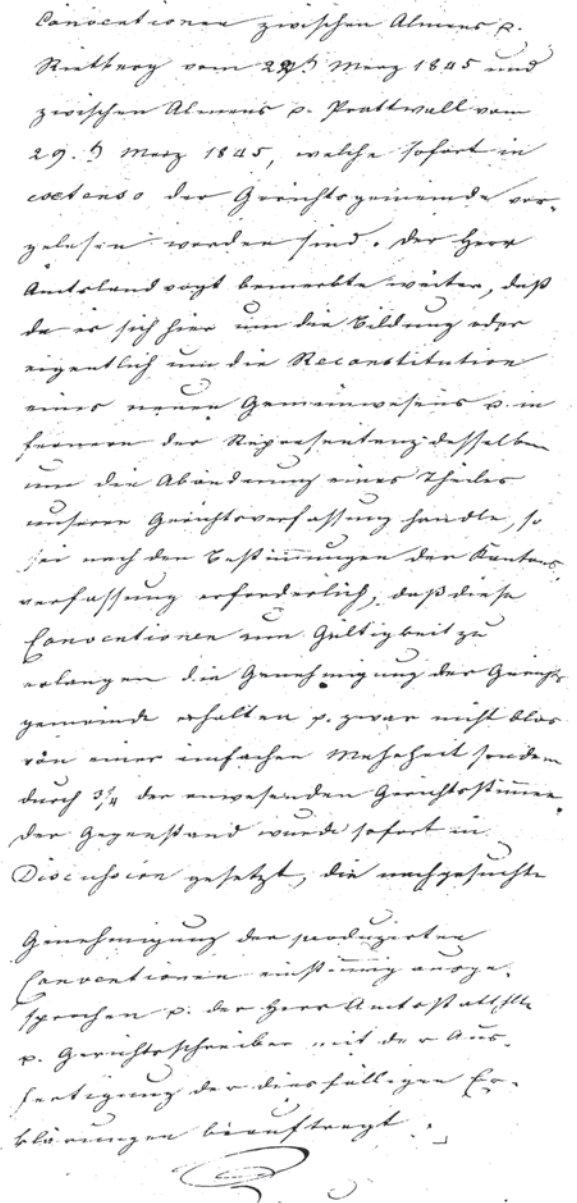 Conventionen zwischen Almens u.
Rietberg vom 29ᵗ. März 1845 und
zwischen Almens u. Prattwall vom
29.ᵗ März 1845, welche sofort in
extenso der Gerichtsgemeinde vor-
gelesen worden sind. Der Herr
Amtslandvogt bemerkte weiter, daß
da es sich hier um die Bildung oder
eigentlich um die Reconstitution
eines neuen Gemeinwesens u. in
fernern der Representanz desselben
um die Abänderung eines Theiles
unserer Gerichtsverfassung handle, so
sei nach den Bestimmungen der Kantons-
verfassung erforderlich, daß diese
Conventionen um Gültigkeit zu
erlangen die Genehmigung der Gerichts
gemeinde erhalten u. zwar nicht blos
von einer einfachen Mehrheit sondern
durch 3/4 der anwesenden Gerichtsstimmen.
Der Gegenstand wurde sofort in
Discussion gesetzt, die nachgesuchte
Genehmigung der produzirten
Conventionen einstimmig ausge-
sprochen u. der Herr Amtsstatthltr
u. Gerichtsschreiber mit der Aus-
fertigung der diesfälligen Er-
klärungen beauftragt.